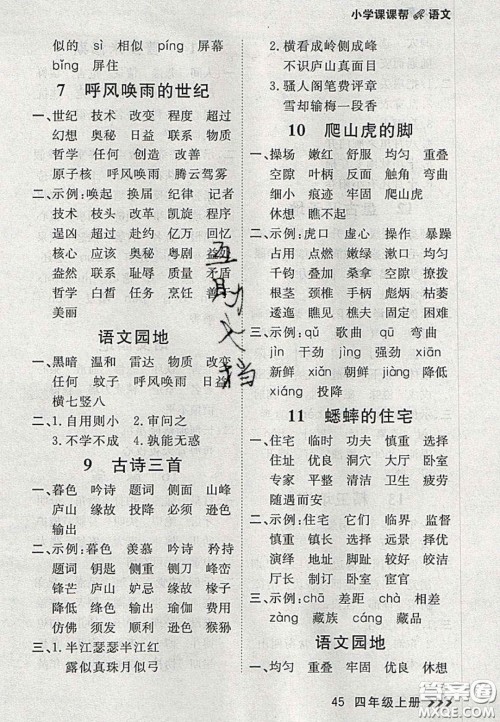 小学课课帮 语文
似的 sì 相似 píng 屏幕
bǐng 屏住
7 呼风唤雨的世纪
一、世纪 技术 改变 程度 超过
幻想 奥秘 日益 联系 物质
哲学 任何 创造 改善
原子核 呼风唤雨 腾云驾雾
二、示例:唤起 换届 纪律 记者
技术 枝头 改革 凯旋 程序
逞凶 超过 赴约 亿万 回忆
核心 应该 奥秘 粤剧 益处
盎然 联系 耻辱 质量 矛盾
哲学 百吨 任务 烹饪 善良
美丽
语文园地
一、黑暗 温和 雷达 物质 改变
任何 蚊子 呼风唤雨 日益
横七竖八
二、1.自用则小 2.审问之
3.不学不成 4.孰能无惑
9 古诗三首
一、暮色 吟诗 题词 侧面 山峰
庐山 缘故 投降 必须 逊色
输出
二、示例:暮色 羡慕 吟诗 妗子
题词 钥匙 侧重 恻隐 山峰
锋芒 庐山 炉忌 缘故 椽子
降临 降低 费用 弗如 评价
仿佛 须发 逊色 孙子 猴狲
三、1.半江瑟瑟半江红
露似真珠月似弓
2.横看成岭侧成峰
不识庐山真面目
3.骚人阁笔费评章
雪却输梅一段香
10 爬山虎的脚
一、操场 嫩红 舒服 均匀 重叠
空隙 叶柄 反面 触角 弯曲
细小 痕迹 牢固 爬山虎
休想 瞧不起
二、示例:虎口 虚心 操作 暴躁
占用 点燃 嫩绿 漱口 均匀
千钧 叠加 桑叶 空隙 撩拨
根茎 颈椎 柄部 丙等 蜗牛
逶迤 瞧见 憔悴 固定 困难
三、示例:qǔ 歌曲 qū 弯曲
jìn 干劲 jìng 强劲 xiān
新鲜 cháo 朝鲜 jiàng 降低
xiáng 投降
11 蟋蟀的住宅
一、住宅 临时 功夫 慎重 选择
住址 优良 洞穴 大厅 卧室
专家 平整 清洁 卫生 疲劳
随遇而安
二、示例:住宅 它们 临界 监督
慎重 镇长 选择 先生 选择
演绎 地址 扯开 较好 良好
厅长 制订 卧室 巨大
三、示例:chā 差距 chà 差劲
zàng 藏族 cáng 藏品
语文园地
一、均匀 重叠 牢固 优良 休想
45 四年级上册